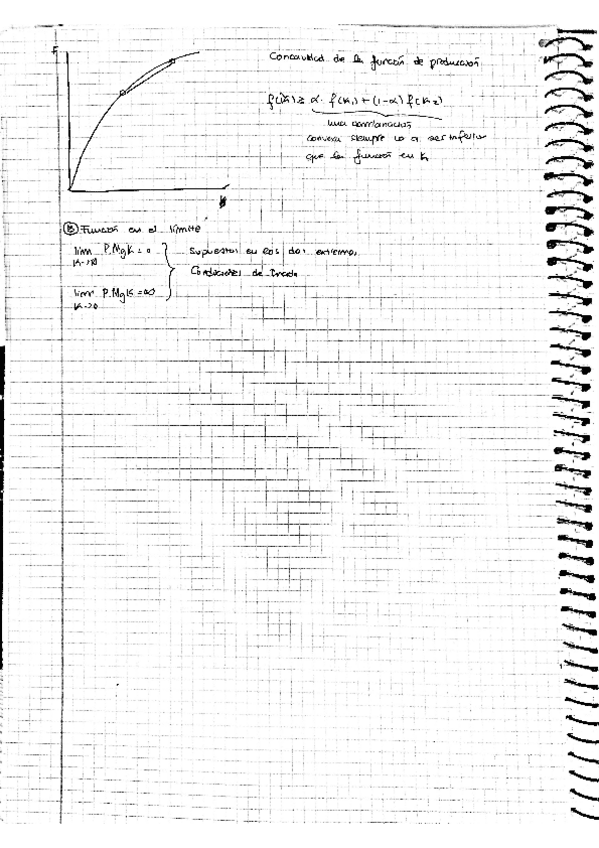 F
Concavidad de la función de producción
f(k̃) ≥ α · f(k₁) + (1-α) f(k₂)
una combinación
convexa siempre va a ser inferior
que la función en k
K
B Función en el límite
lim P.MgK = 0
K→∞
Supuestos en los dos extremos,
Condiciones de Inada
lim P.MgK = ∞
K→0